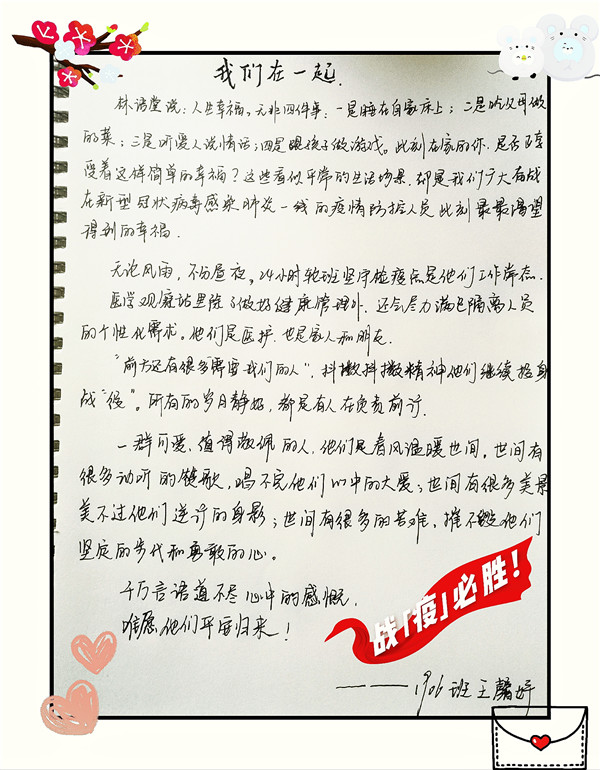 我们在一起.
林语堂说：人生幸福，无非四件事：一是睡在自家床上；二是吃父母做
的菜；三是听爱人说情话；四是跟孩子做游戏。此刻在家的你，是否正享
受着这样简单的幸福？这些看似平常的生活场景，却是我们广大奋战
在新型冠状病毒感染肺炎一线的疫情防控人员此刻最最渴望
得到的幸福.
无论风雨，不分昼夜。24小时轮班坚守检疫点是他们工作常态.
医学观察站里除了做好健康管理外，还会尽力满足隔离人员
的个性化需求。他们是医护，也是家人和朋友.
“前方还有很多需要我们的人”，抖擞抖擞精神他们继续投身
战“役”。所有的岁月静好，都是有人在负责前行.
一群可爱、值得敬佩的人，他们是春风温暖世间。世间有
很多动听的赞歌，唱不完他们心中的大爱；世间有很多美景
美不过他们逆行的身影；世间有很多的苦难，摧不毁他们
坚定的步伐和勇敢的心。
千万言语道不尽心中的感慨，
唯愿他们平安归来！
战「疫」必胜！
———1906班王馨妤